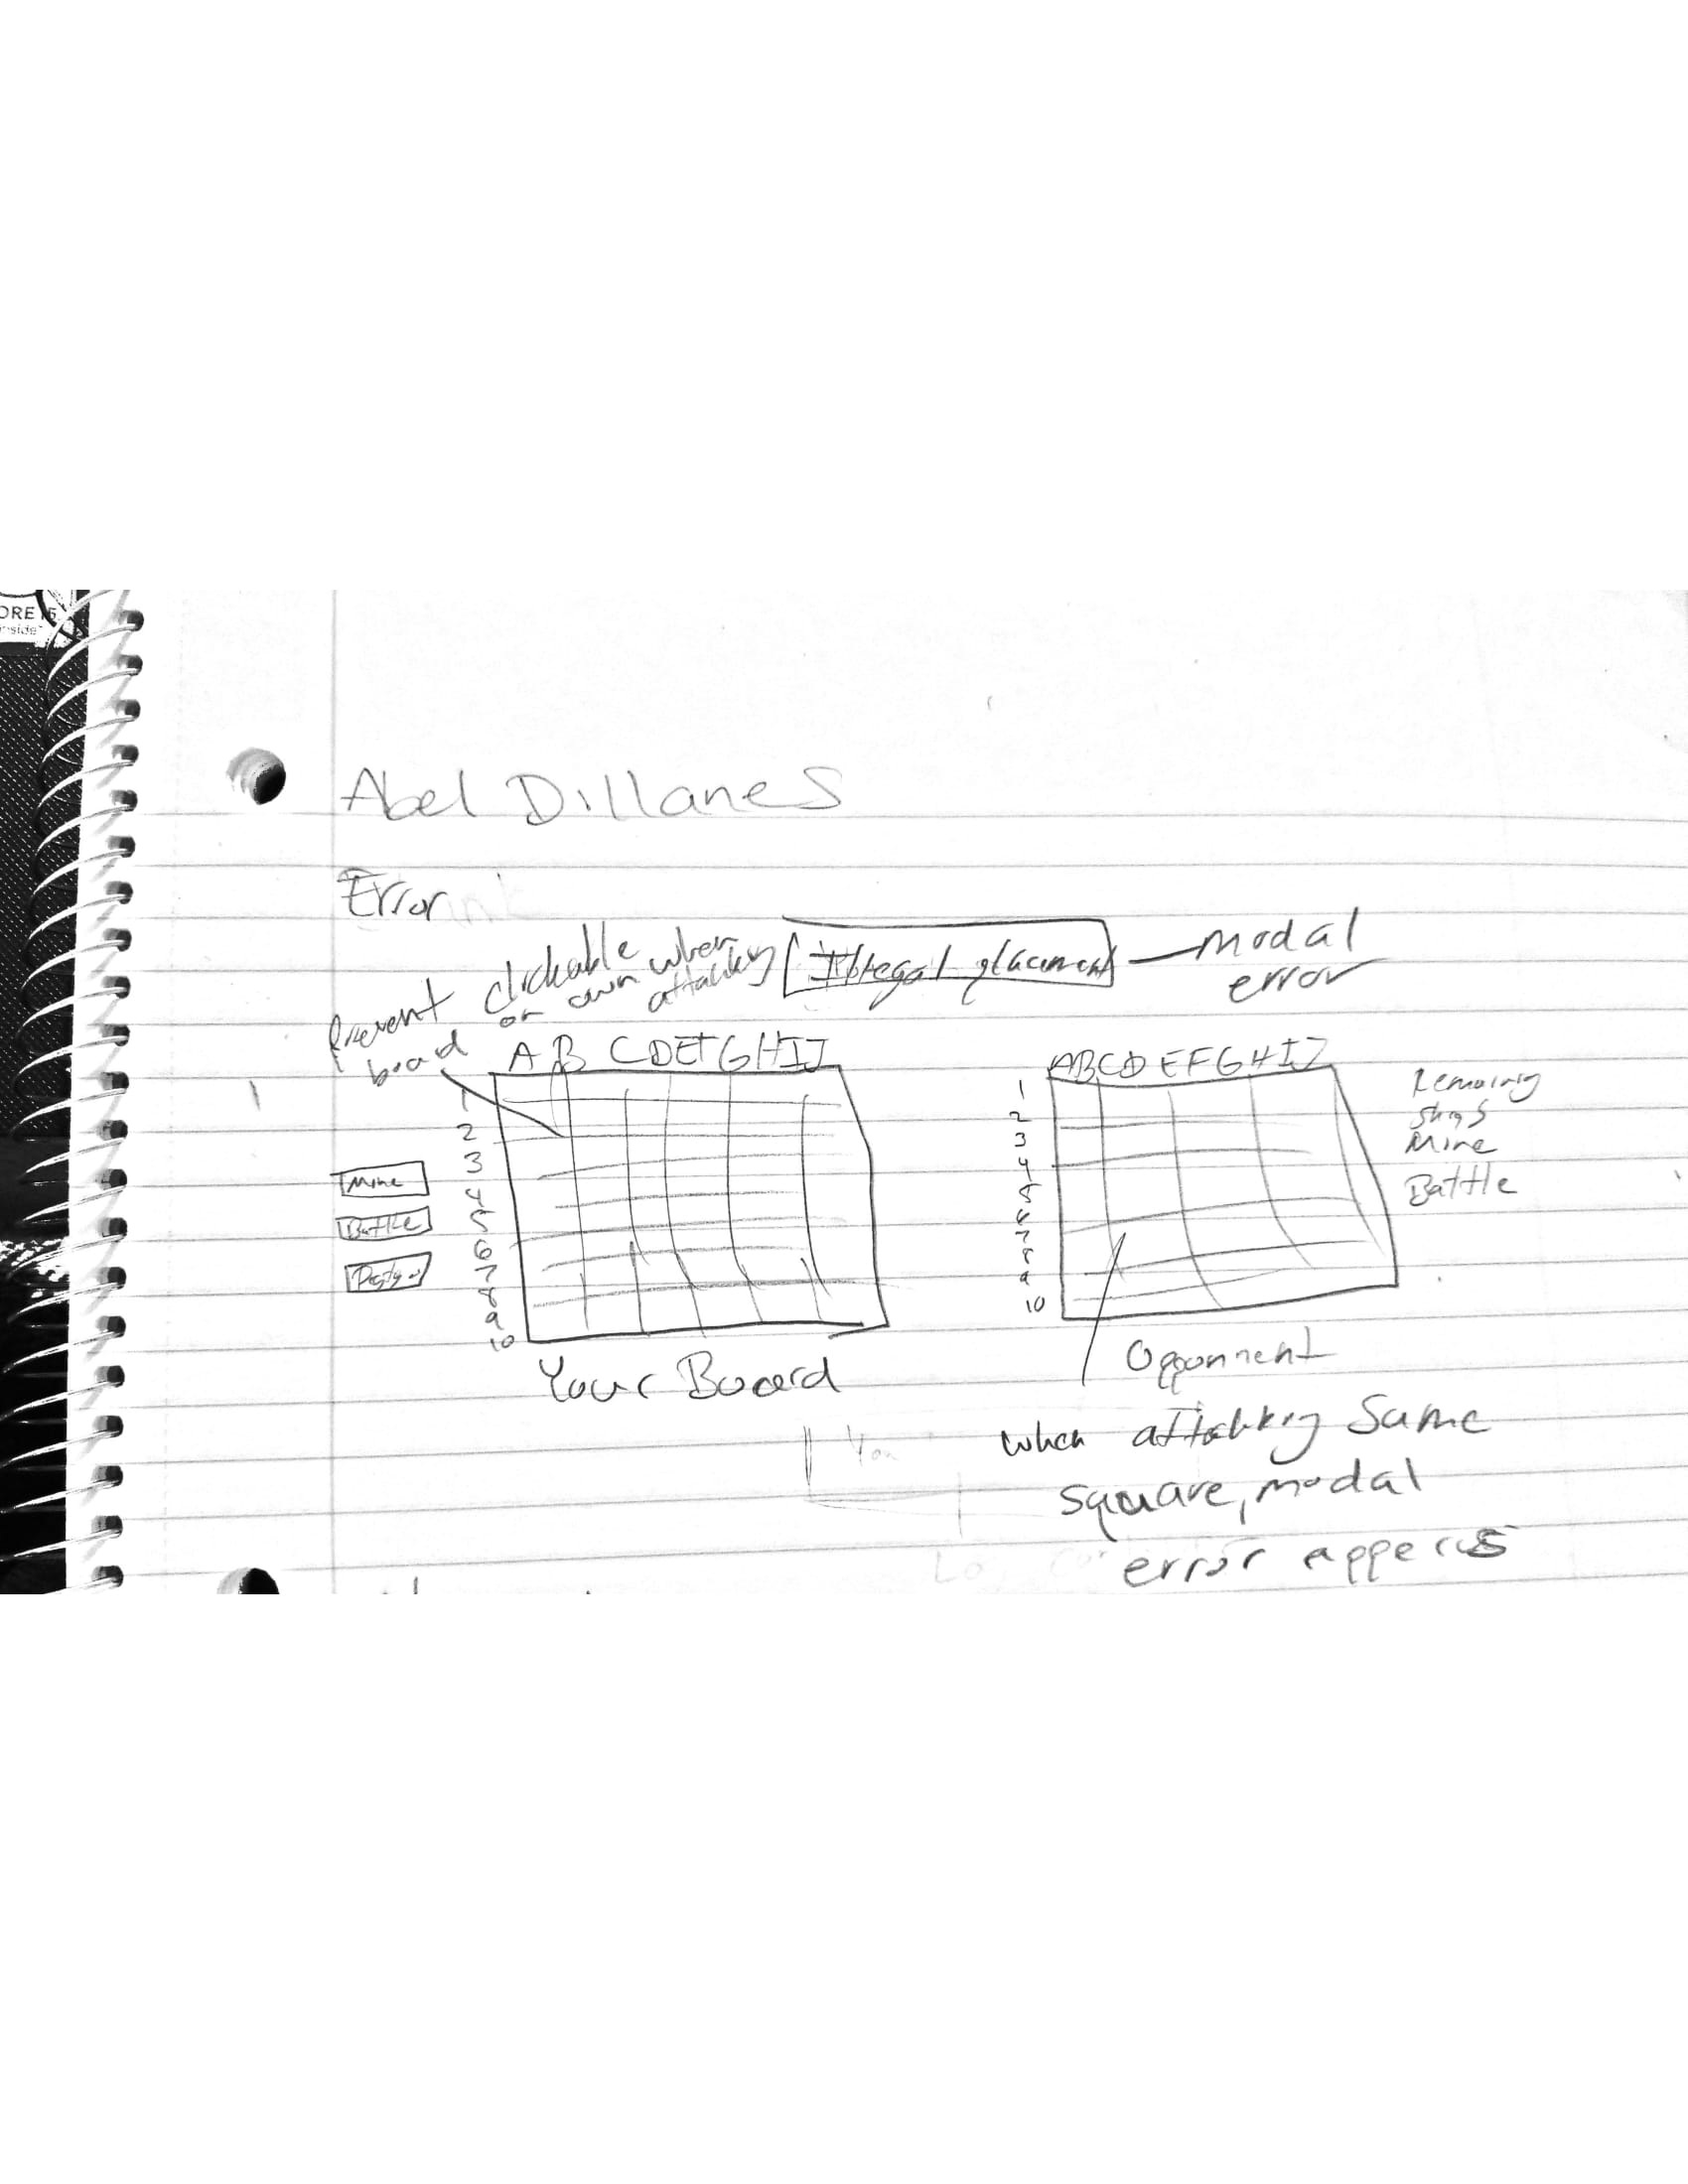 ORE i5
Abel Dillanes
Error
Prevent clickable
on own when
attacking
board
Illegal placement
modal
error
A B C D E F G H I J
1
2
3
4
5
6
7
8
9
10
Mine
Battle
Your Board
A B C D E F G H I J
1
2
3
4
5
6
7
8
9
10
Remaining
ships
Mine
Battle
Opponnent
when attacking same
square, modal
error appears
You